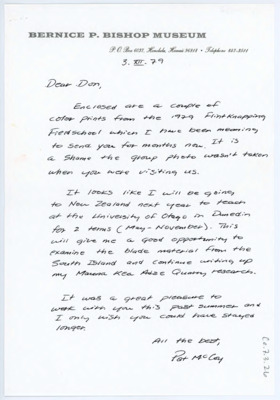 BERNICE P. BISHOP MUSEUM
P. O. Box 6037, Honolulu, Hawaii 96818 • Telephone 847-3511
3. XII. 79
Dear Don,
Enclosed are a couple of
color prints from the 1979 Flintknapping
Fieldschool which I have been meaning
to send you for months now. It is
a shame the group photo wasn't taken
when you were visiting us.
It looks like I will be going
to New Zealand next year to teach
at the University of Otago in Dunedin
for 2 terms (May-November). This
will give me a good opportunity to
examine the blade material from the
South Island and continue writing up
my Mauna Kea Adze Quarry research.
It was a great pleasure to
work with you this past summer and
I only wish you could have stayed
longer.
All the best,
Pat McCoy